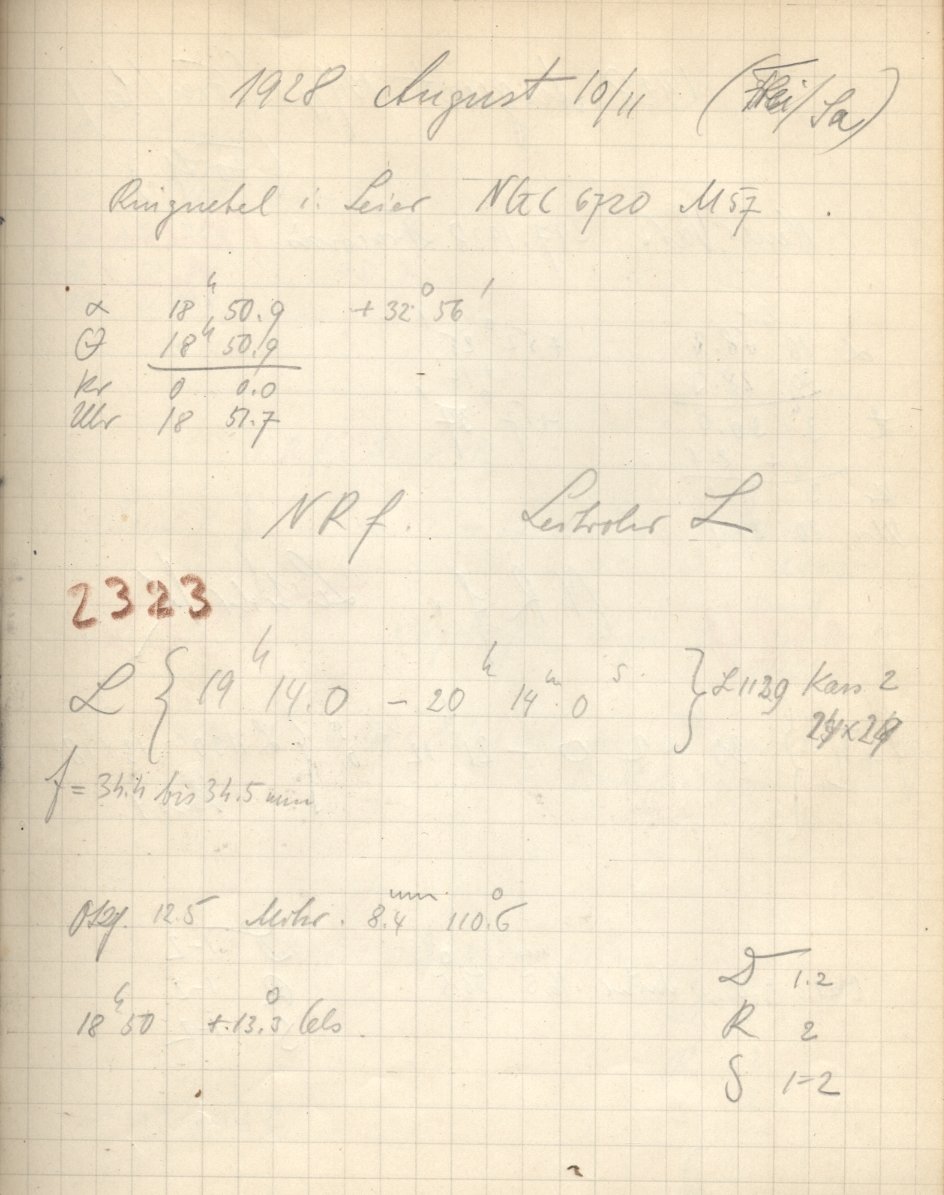 1928 August 10/11 (Frei/Sa)
Ringnebel i. Leier NGC 6720 M 57
α 18h 50.9 +32° 56'
Θ 18h 50.9
Kr 0 0.0
Uhr 18 51.7
NRf. Leitrohr L
2323
L { 19h 14.0 – 20h 14m.0 s } L1129 Kass 2
24x24
f = 34.4 bis 34.5 mm
Okj. 12.5 Mikr. 8.4mm 110.6°
18h 50 +.13.3° Cels.
D 1.2
R 2
S 1-2